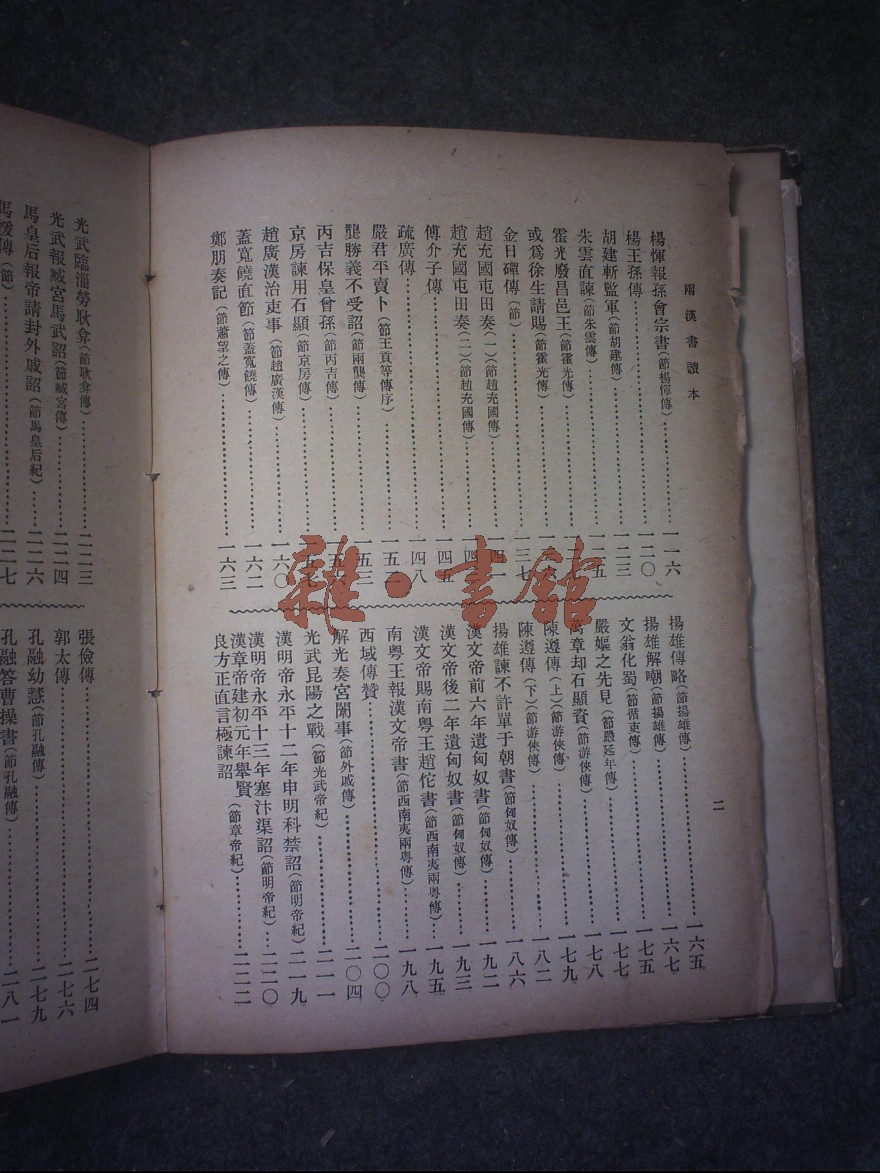 兩漢書讀本
二
楊惲報孫會宗書(節楊惲傳)………一一六
楊王孫傳………一二〇
胡建斬監軍(節胡建傳)………一二三
朱雲直諫(節朱雲傳)………一二五
霍光廢昌邑王(節霍光傳)………
或爲徐生請賜(節霍光傳)………
金日磾傳(節)………一三七
趙充國屯田奏(一)(節趙充國傳)………一四一
趙充國屯田奏(二)(節趙充國傳)………
傅介子傳………一四五
疏廣傳………一四八
嚴君平賣卜(節王貢等傳序)………
龔勝義不受詔(節兩龔傳)………一五三
丙吉保皇曾孫(節丙吉傳)………
京房諫用石顯(節京房傳)………
趙廣漢治吏事(節趙廣漢傳)………一六〇
蓋寬饒直節(節蓋寬饒傳)………一六二
鄭朋奏記(節蕭望之傳)………一六三
揚雄傳略(節揚雄傳)………一六五
揚雄解嘲(節揚雄傳)………一六七
文翁化蜀(節循吏傳)………一七五
嚴嫗之先見(節嚴延年傳)………一七七
萬章却石顯資(節游俠傳)………一七八
陳遵傳(上)(節游俠傳)………一七九
陳遵傳(下)(節游俠傳)………一八二
揚雄諫不許單于朝書(節匈奴傳)………一八六
漢文帝前六年遺匈奴書(節匈奴傳)………一九二
漢文帝後二年遺匈奴書(節匈奴傳)………一九三
漢文帝賜南粵王趙佗書(節西南夷兩粵傳)………一九五
南粵王報漢文帝書(節西南夷兩粵傳)………一九八
西域傳贊………二〇〇
解光奏宮闈事(節外戚傳)………二〇四
光武昆陽之戰(節光武帝紀)………二一一
漢明帝永平十二年申明科禁詔(節明帝紀)二一九
漢明帝永平十三年塞汴渠詔(節明帝紀)…二二〇
漢章帝建初元年舉賢
良方正直言極諫詔(節章帝紀)………二二二
光武臨淄勞耿弇(節耿弇傳)………二二三
光武報臧宮馬武詔(節臧宮傳)………二二四
馬皇后報帝請封外戚詔(節馬皇后紀)……二二六
馬援傳(節)………二二七
張儉傳………二七四
郭太傳………二七六
孔融幼慧(節孔融傳)………二七九
孔融答曹操書(節孔融傳)………二八一
雜·書館